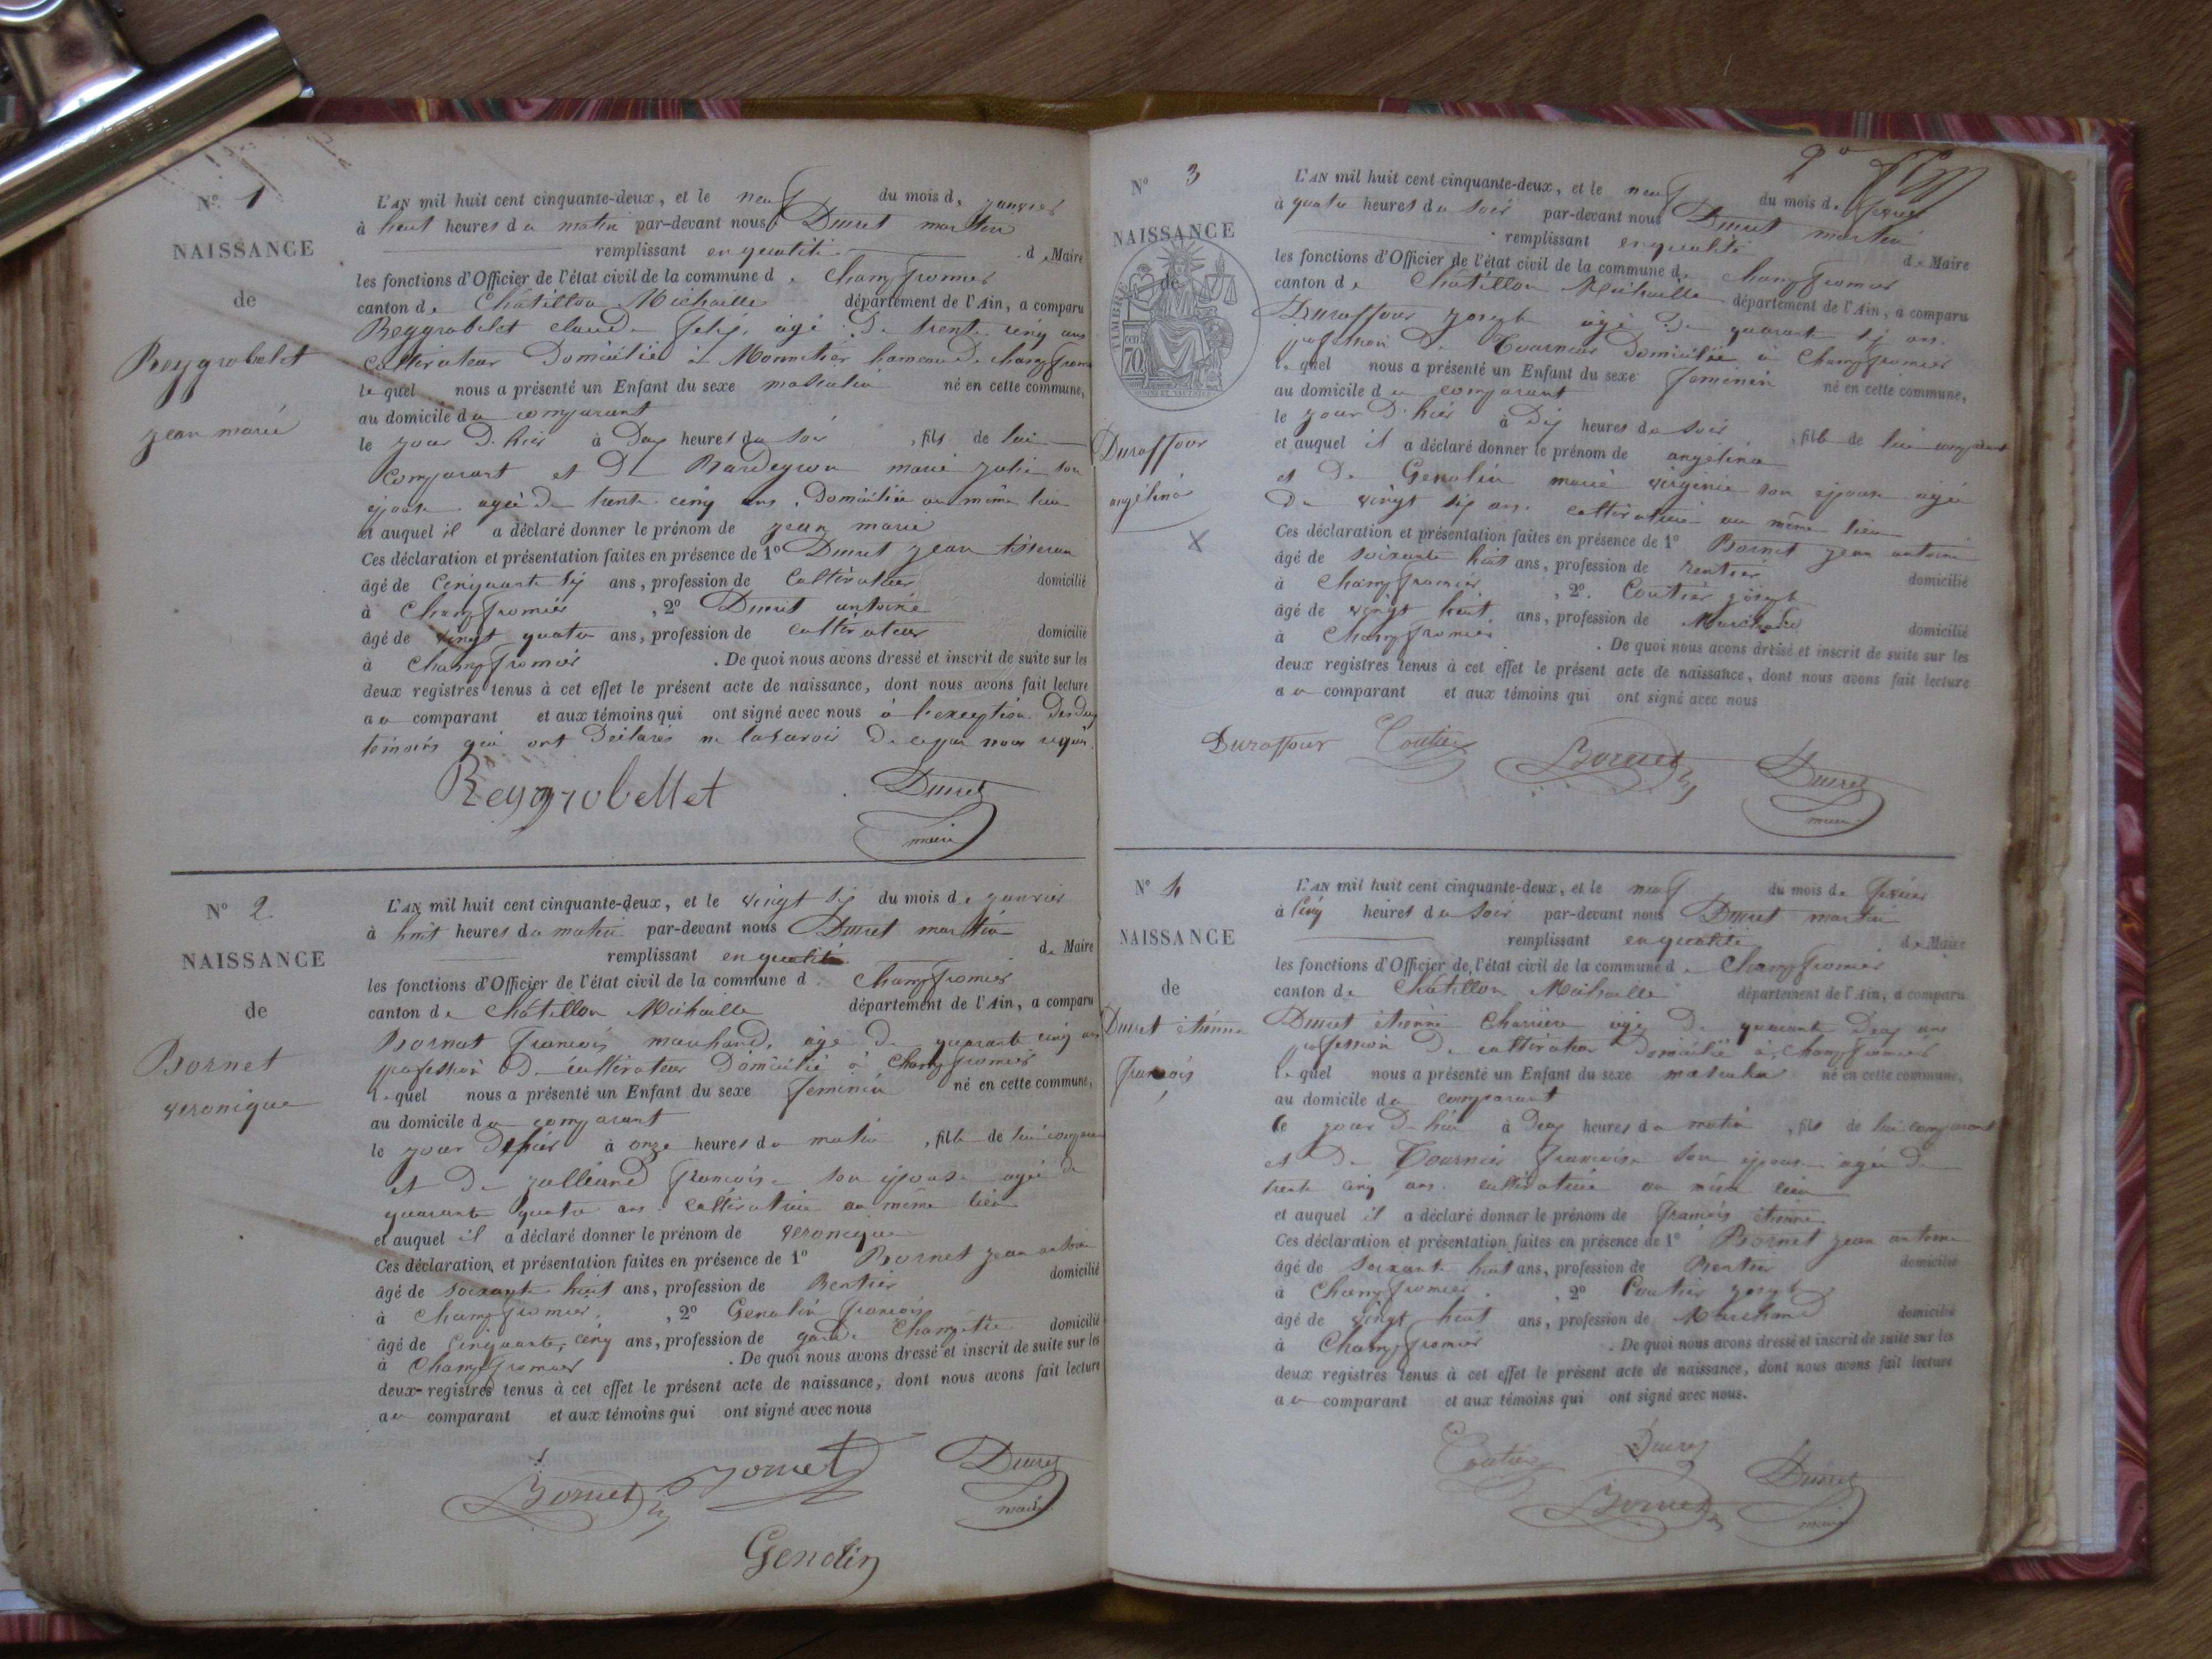 N° 1
NAISSANCE
de
Reygrobelet
jean marie
L'AN mil huit cent cinquante-deux, et le neuf du mois de janvier
à huit heures du matin par-devant nous Ducret martin
remplissant en qualité de Maire
les fonctions d'Officier de l'état civil de la commune de Champfromier
canton de Châtillon Michaille département de l'Ain, a comparu
Reygrobelet claude felix, âgé de trente cinq ans
Cultivateur Domicilié à Monnetier hameau de champfromier
lequel nous a présenté un Enfant du sexe masculin né en cette commune,
au domicile du comparant
le jour d'hier à Deux heures du soir, fils de lui
comparant et De Bardeyron marie julie son
épouse agée de trente cinq ans. Domiciliée au même lieu
et auquel il a déclaré donner le prénom de jean marie
Ces déclaration et présentation faites en présence de 1° Ducret jean tisseran
âgé de Cinquante six ans, profession de Cultivateur domicilié
à Champfromier, 2° Ducret antoine
âgé de vingt quatre ans, profession de cultivateur domicilié
à Champfromier. De quoi nous avons dressé et inscrit de suite sur les
deux registres tenus à cet effet le présent acte de naissance, dont nous avons fait lecture
au comparant et aux témoins qui ont signé avec nous à l'exception Des deux
temoins qui ont Déclarés ne la savoir De ce par nous requis.
Reygrobellet Ducret
maire
N° 2
NAISSANCE
de
Bornet
veronique
L'AN mil huit cent cinquante-deux, et le vingt six du mois de janvier
à huit heures du matin par-devant nous Ducret martin
remplissant en qualité de Maire
les fonctions d'Officier de l'état civil de la commune d. Champfromier
canton de Châtillon Michaille département de l'Ain, a comparu
Bornet francois marchand, âge de quarante cinq ans
profession De cultivateur Domicilié à Champfromier
lequel nous a présenté un Enfant du sexe feminin né en cette commune,
au domicile du comparant
le jour d'hier à onze heures du matin, fille de lui comparant
et De julliand francoise son épouse agée de
quarante quatre ans cultivatrice au même lieu
et auquel il a déclaré donner le prénom de veronique
Ces déclaration et présentation faites en présence de 1° Bornet jean antoine
âgé de soixante huit ans, profession de Rentier domicilié
à Champfromier, 2° Genolin francois
âgé de Cinquante cinq ans, profession de garde Champetre domicilié
à Champfromier. De quoi nous avons dressé et inscrit de suite sur les
deux registres tenus à cet effet le présent acte de naissance, dont nous avons fait lecture
au comparant et aux témoins qui ont signé avec nous
Bornet Bornet Ducret
maire
Genolin
2°
N° 3
NAISSANCE
de
TIMBRE
70
Duraffour
angélina
X
L'AN mil huit cent cinquante-deux, et le neuf du mois de fevrier
à quatre heures du soir par-devant nous Ducret martin
remplissant en qualité de Maire
les fonctions d'Officier de l'état civil de la commune de Champfromier
canton de Châtillon Michaille département de l'Ain, a comparu
Duraffour joseph âgé De quarante six ans
profession De Tourneur Domicilié à Champfromier
lequel nous a présenté un Enfant du sexe feminin né en cette commune,
au domicile du comparant
le jour D'hier à Dix heures du soir, fille de lui comparant
et auquel il a déclaré donner le prénom de angelina
et De Genolin marie virginie son épouse agée
De vingt six ans. cultivatrice au même lieu
Ces déclaration et présentation faites en présence de 1° Bornet jean antoine
âgé de soixante huit ans, profession de rentier domicilié
à Champfromier, 2° Coutier joseph
âgé de vingt huit ans, profession de Marchand domicilié
à Champfromier. De quoi nous avons dressé et inscrit de suite sur les
deux registres tenus à cet effet le présent acte de naissance, dont nous avons fait lecture
au comparant et aux témoins qui ont signé avec nous
Duraffour Coutier Bornet Ducret
maire
N° 4
NAISSANCE
de
Ducret étienne
françois
L'AN mil huit cent cinquante-deux, et le neuf du mois de fevrier
à Cinq heures du soir par-devant nous Ducret martin
remplissant en qualité de Maire
les fonctions d'Officier de l'état civil de la commune de Champfromier
canton de Châtillon Michaille département de l'Ain, a comparu
Ducret étienne Charriere âgé De quarante Deux ans
profession De cultivateur Domicilié à Champfromier
lequel nous a présenté un Enfant du sexe masculin né en cette commune,
au domicile du comparant
le jour D'hier à Deux heures du matin, fils de lui comparant
et De Tournier francoise son épouse agée De
trente cinq ans. cultivatrice au même lieu
et auquel il a déclaré donner le prénom de françois étienne
Ces déclaration et présentation faites en présence de 1° Bornet jean antoine
âgé de soixante huit ans, profession de Rentier domicilié
à Champfromier, 2° Coutier joseph
âgé de vingt huit ans, profession de Marchand domicilié
à Champfromier. De quoi nous avons dressé et inscrit de suite sur les
deux registres tenus à cet effet le présent acte de naissance, dont nous avons fait lecture
au comparant et aux témoins qui ont signé avec nous.
Coutier Ducret
Bornet Ducret
maire